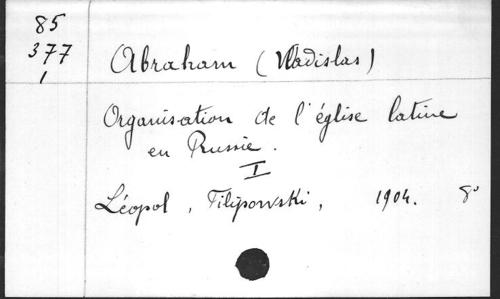 85
377
1
Abraham (Vladislas)
Organisation de l'église latine
en Russie.
I
Léopol, Filipowski, 1904. 8°